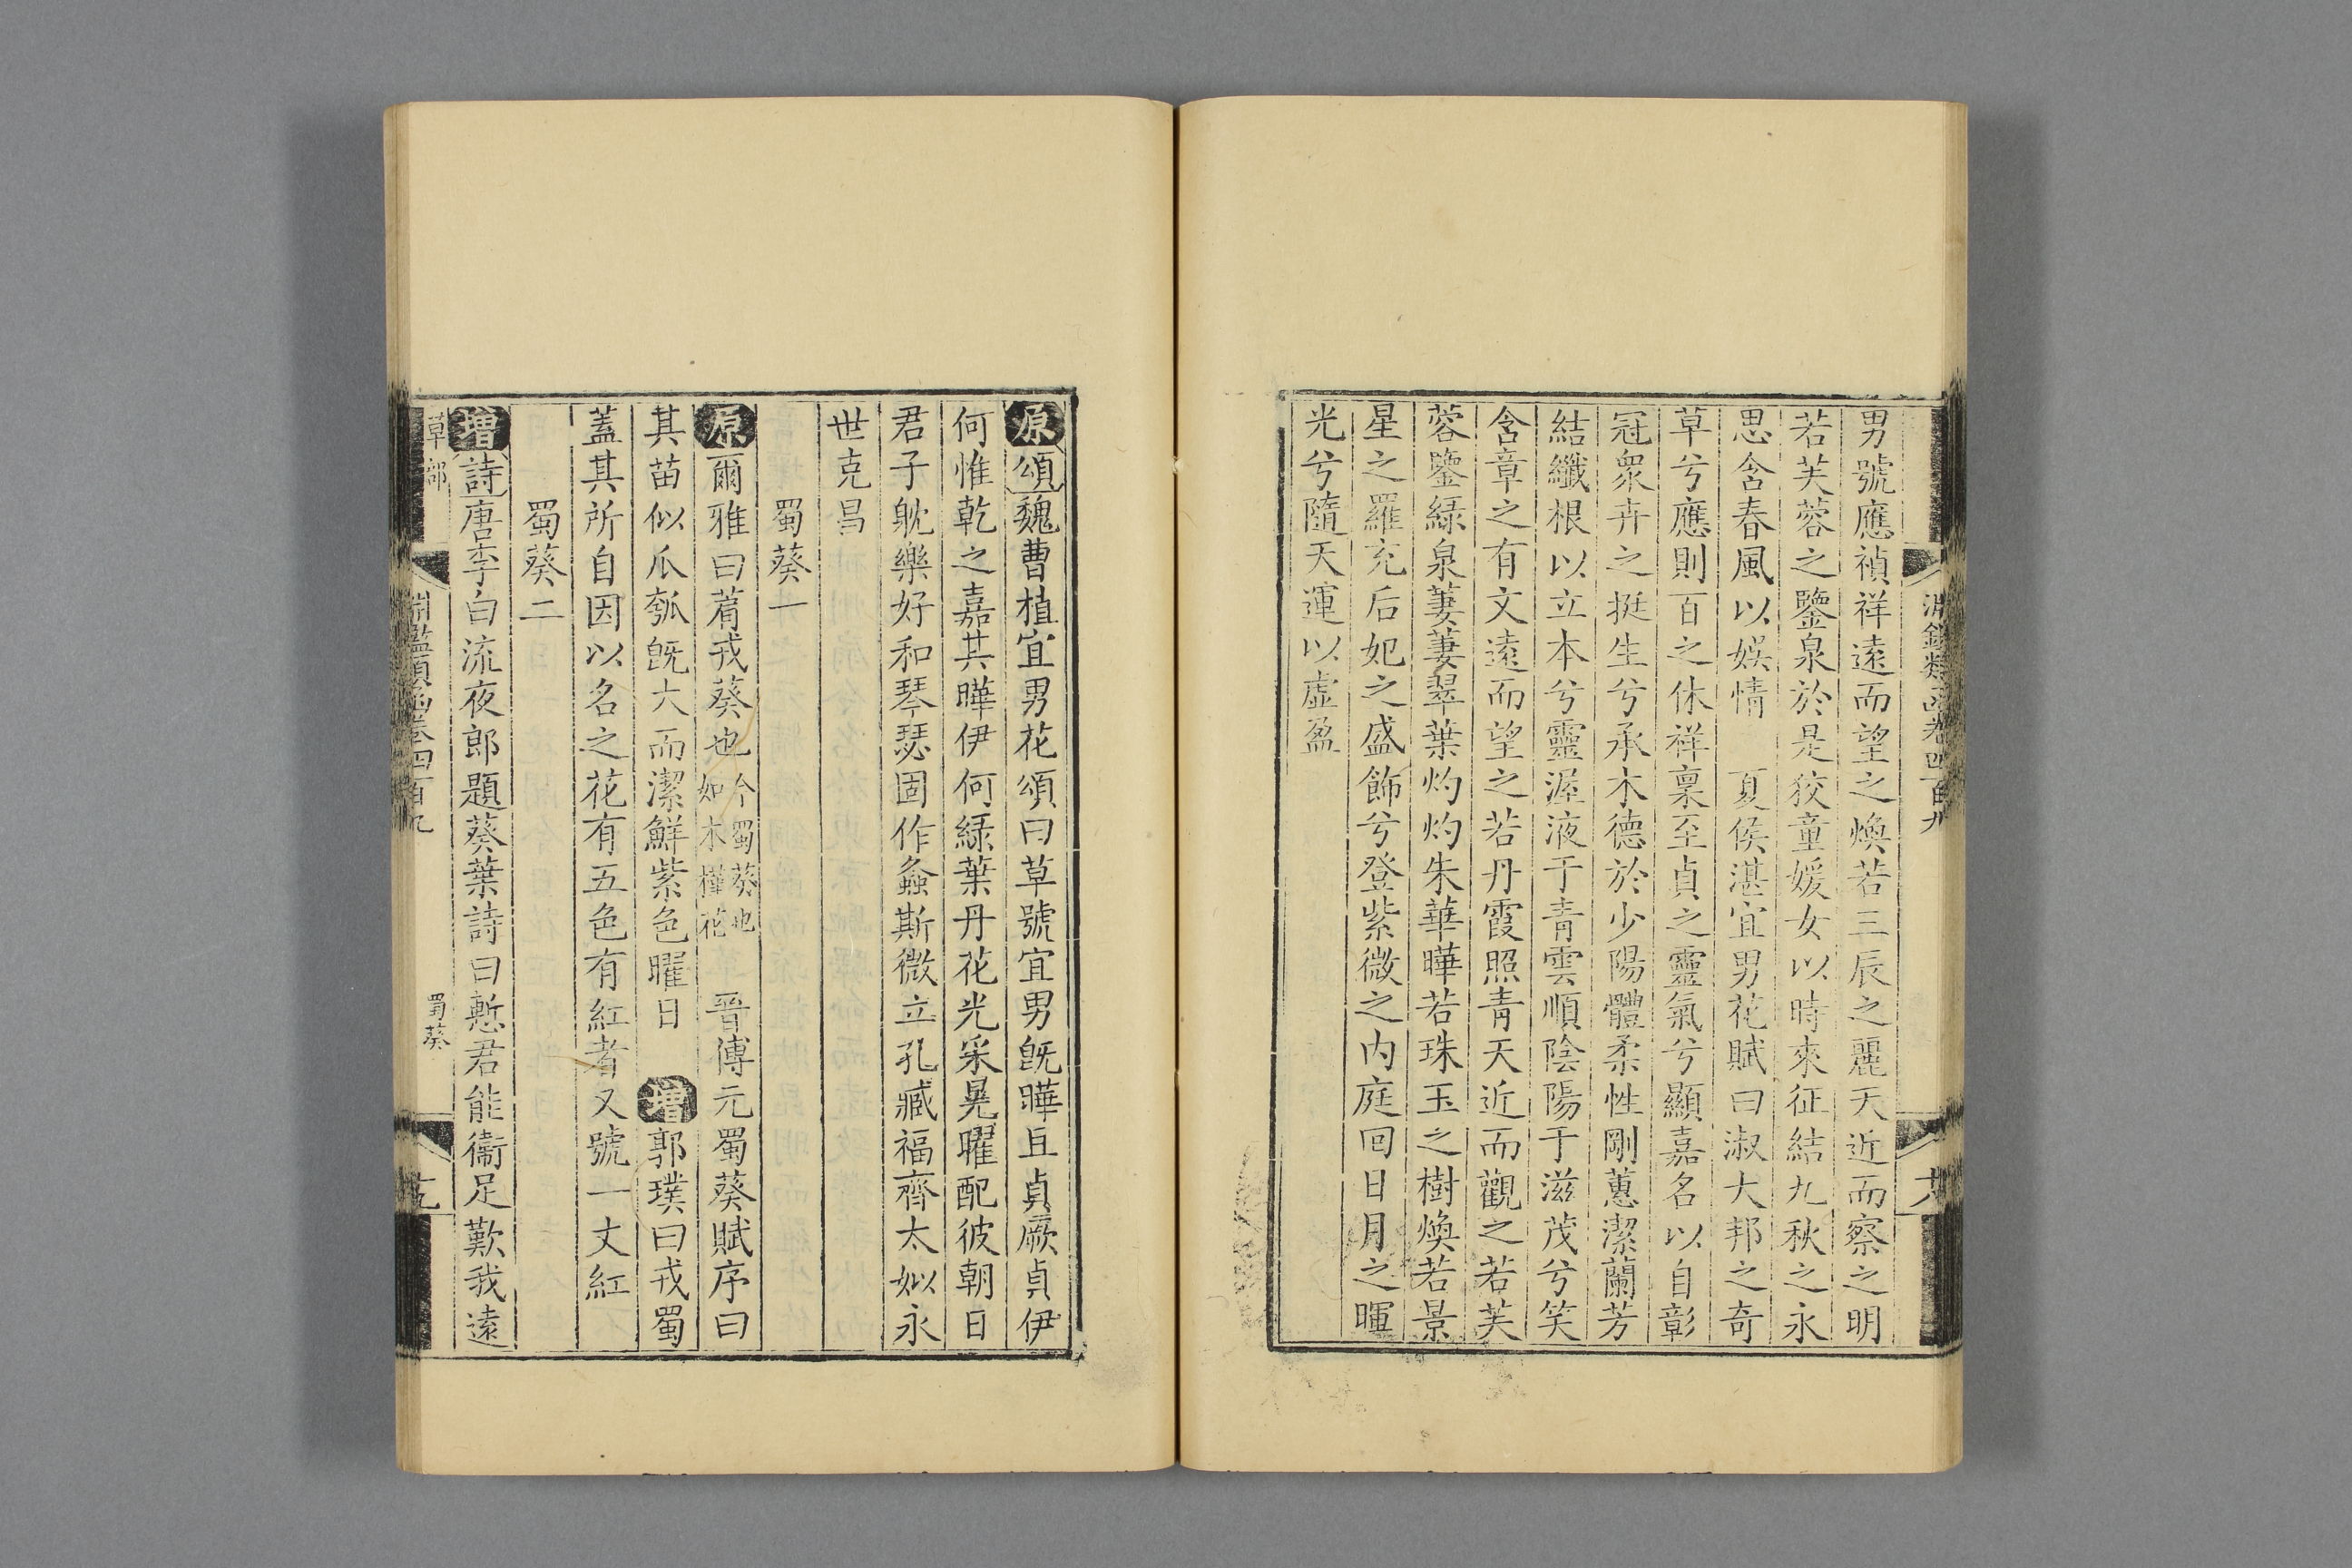 淵鑑類函卷四百九
男號應禎祥遠而望之煥若三辰之麗天近而察之明
若芙蓉之鑒泉於是狡童媛女以時來征結九秋之永
思含春風以娛情 夏侯湛宜男花賦曰淑大邦之奇
草兮應則百之休祥稟至貞之靈氣兮顯嘉名以自彰
冠衆卉之挺生兮承木德於少陽體柔性剛蕙潔蘭芳
結纖根以立本兮靈渥液于青雲順陰陽于滋茂兮笑
含章之有文遠而望之若丹霞照青天近而觀之若芙
蓉鑒綠泉萋萋翠葉灼灼朱華曄若珠玉之樹煥若景
星之羅充后妃之盛飾兮登紫微之内庭囘日月之暉
光兮隨天運以虛盈
原頌魏曹植宜男花頌曰草號宜男旣曄且貞厥貞伊
何惟乾之嘉其曄伊何綠葉丹花光采晃曜配彼朝日
君子躭樂好和琴瑟固作螽斯微立孔臧福齊太姒永
世克昌
蜀葵一
原爾雅曰菺戎葵也今蜀葵也如木槿花 晉傅元蜀葵賦序曰
其苗似瓜瓠旣大而潔鮮紫色曜日 增郭璞曰戎蜀
蓋其所自因以名之花有五色有紅者又號一丈紅
蜀葵二
增詩唐李白流夜郎題葵葉詩曰慙君能衞足歎我遠
草部
淵鑑類函卷四百九
蜀葵